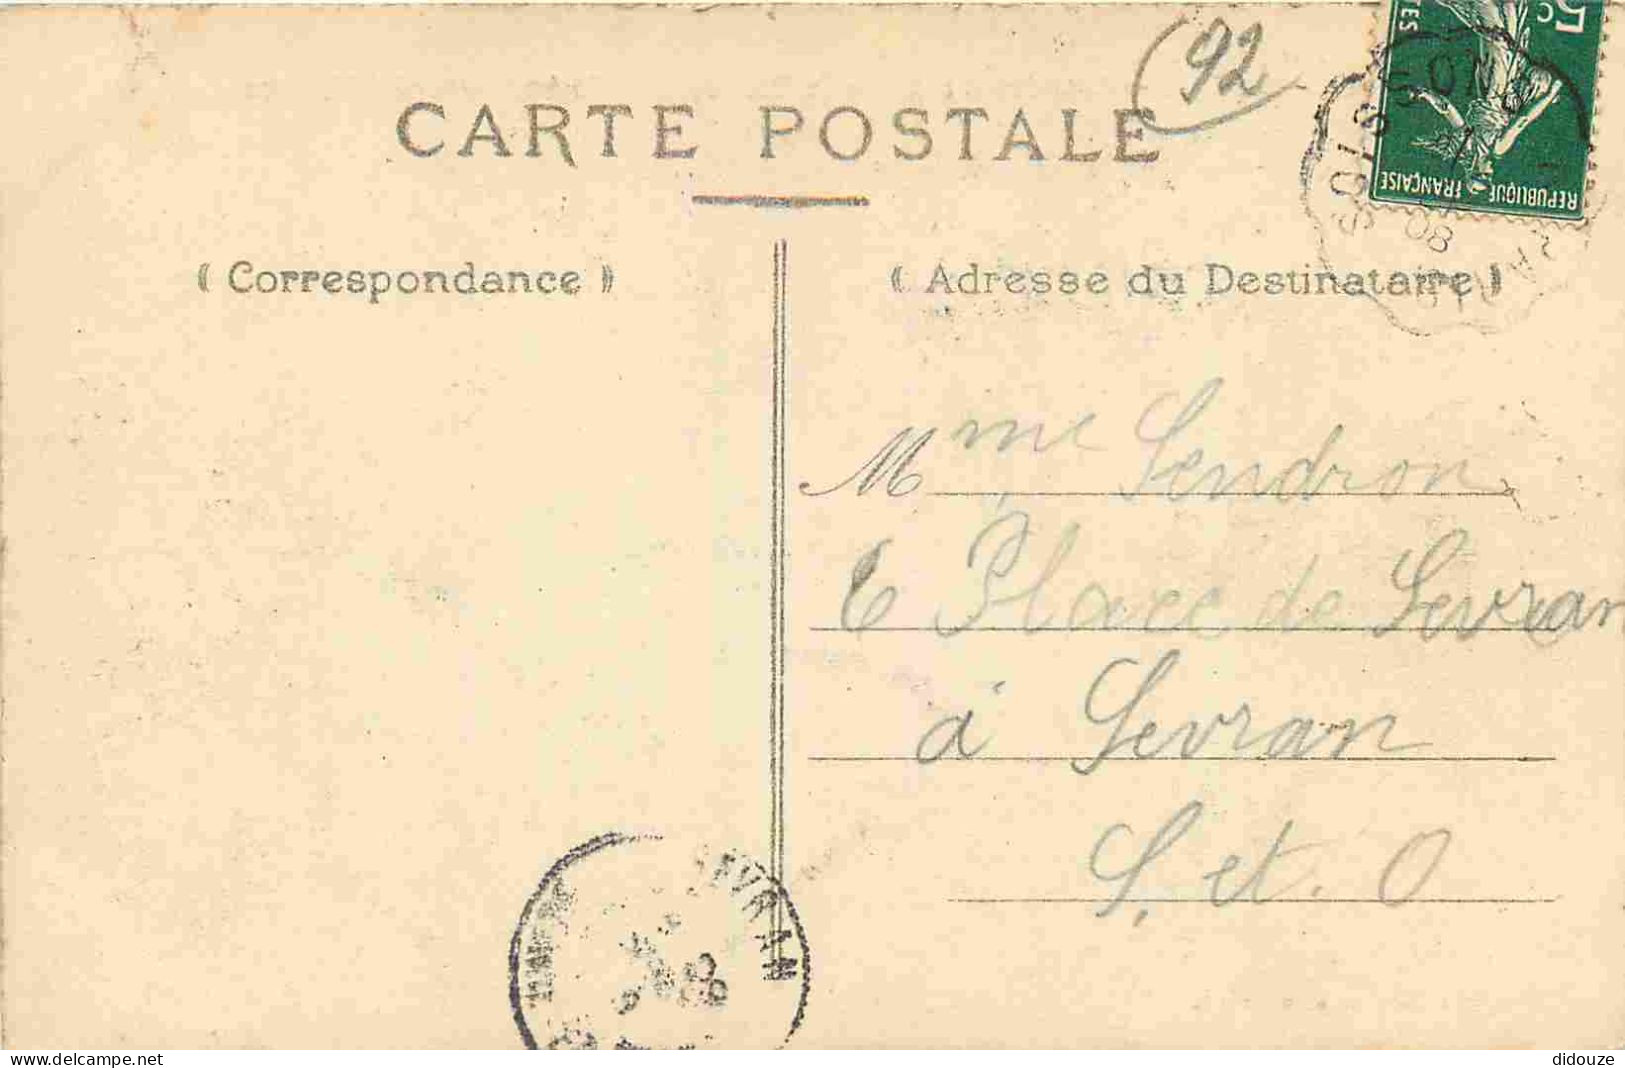 92
5
C
TES
RÉPUBLIQUE FRANÇAISE
SOISSONS
08
CARTE POSTALE
( Correspondance )
( Adresse du Destinataire )
Mme Sendron
6 Place de Sevran
à Sevran
S. et. O
SEVRAN
website: www.delcampe.net
didouze